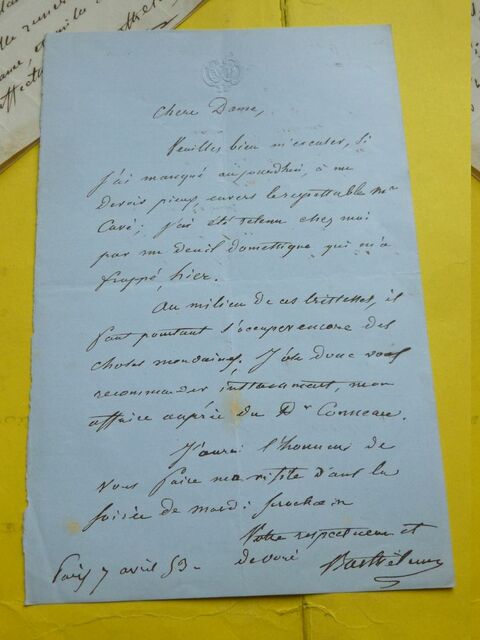 Chere Dame,
Veuilles bien m'excuser, si
j'ai manqué aujourdhui, à un
devoir pieux, envers le respettable Mr
Cavé; j'ai été retenu chez moi
par un deuil domestique qui m'a
frappé, hier.
Au milieu de ces tristesses, il
faut pourtant s'occuper encore des
choses mondaines. J'ose donc vous
recommander instamment, mon
affaire auprès du Dr Conneau.
J'aurai l'honneur de
vous faire ma visite dans la
soirée de mardi prochain
Votre respectueux et
devoué
Paris 7 avril 53-